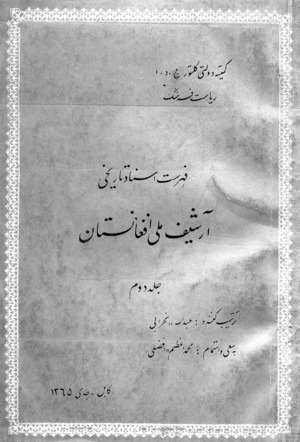 کمیته دولتی کلتور ج. د. ا
ریاست فرهنگ
فهرست اسناد تاریخی
آرشیف ملی افغانستان
جلد دوم
ترتیب کننده :
بسعی و اهتمام : محمد اعظم افضلی
کابل - جدی ۱۳۶۵